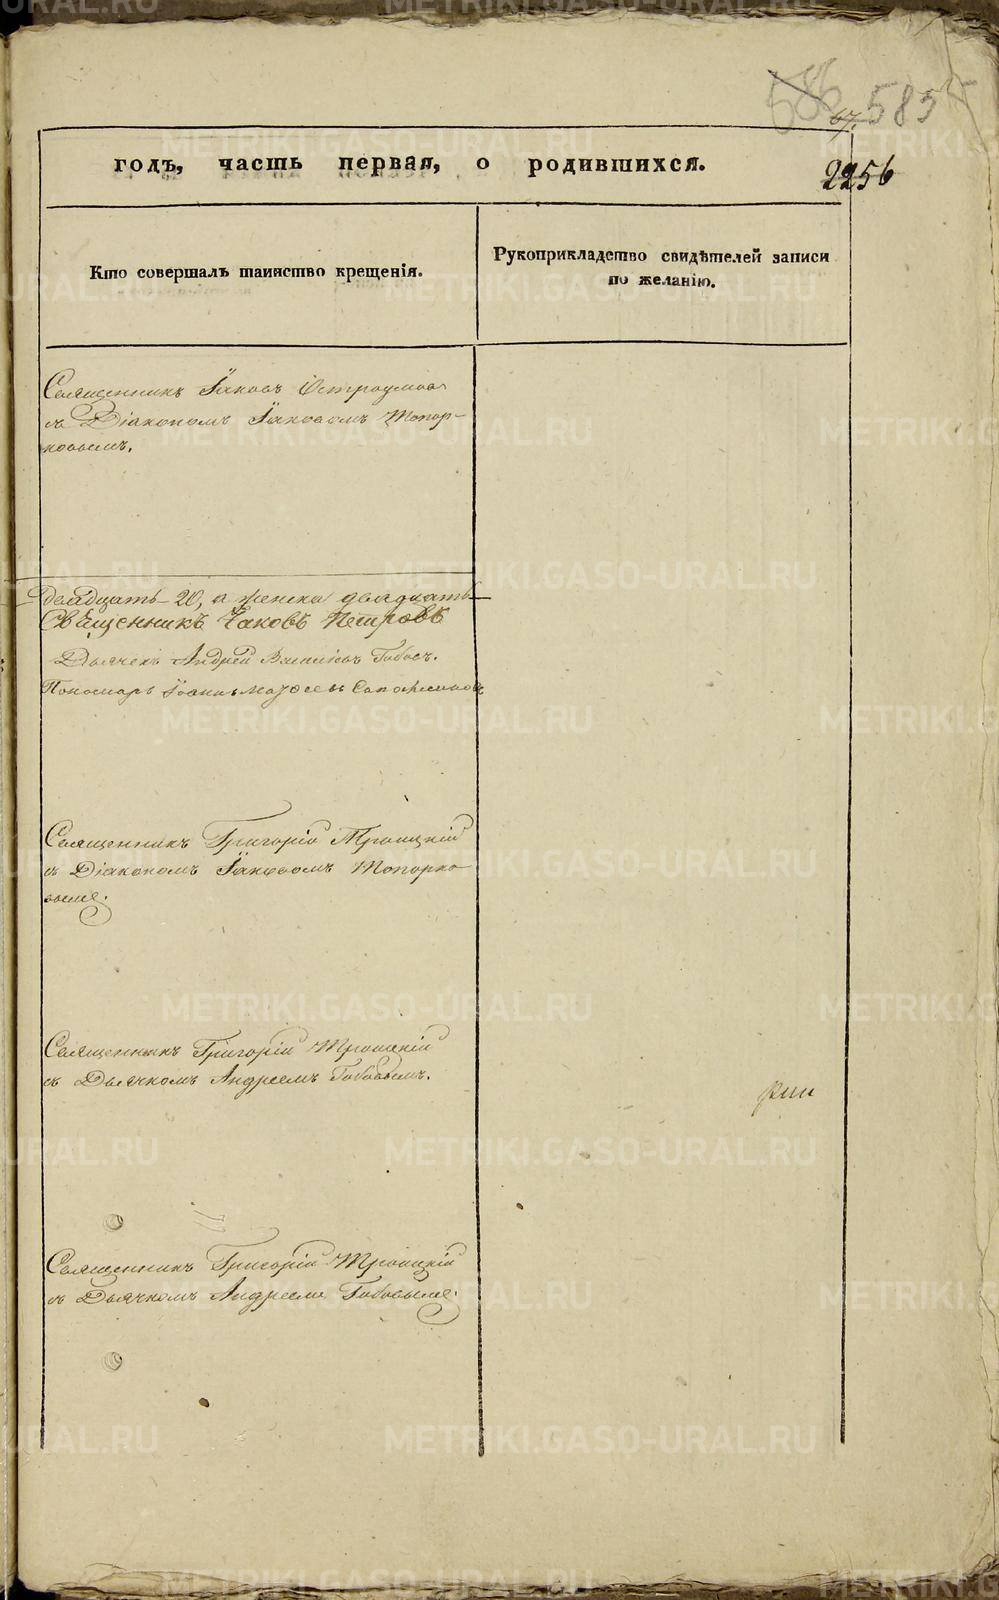 586
67.
585
годъ, часть первая, о родившихся.
2256
Кто совершалъ таинство крещенія.
Рукоприкладство свидѣтелей записи
по желанію.
Священникъ Іаковъ Остроумовъ
съ Діакономъ Іаковомъ Топор-
ковымъ.
двадцать 20, а женска двадцать
Священникъ Іаковъ Петровъ
Дьячекъ Андрей
Пономарь Іоаннъ Сапожниковъ
Священникъ Григорій Троицкій
съ Діакономъ Іаковомъ Топорко-
вымъ.
Священникъ Григорій Троицкій
съ Дьячкомъ Андреемъ Бобовымъ.
Священникъ Григорій Троицкій
съ Дьячкомъ Андреемъ Бобовымъ.
METRIKI.GASO-URAL.RU